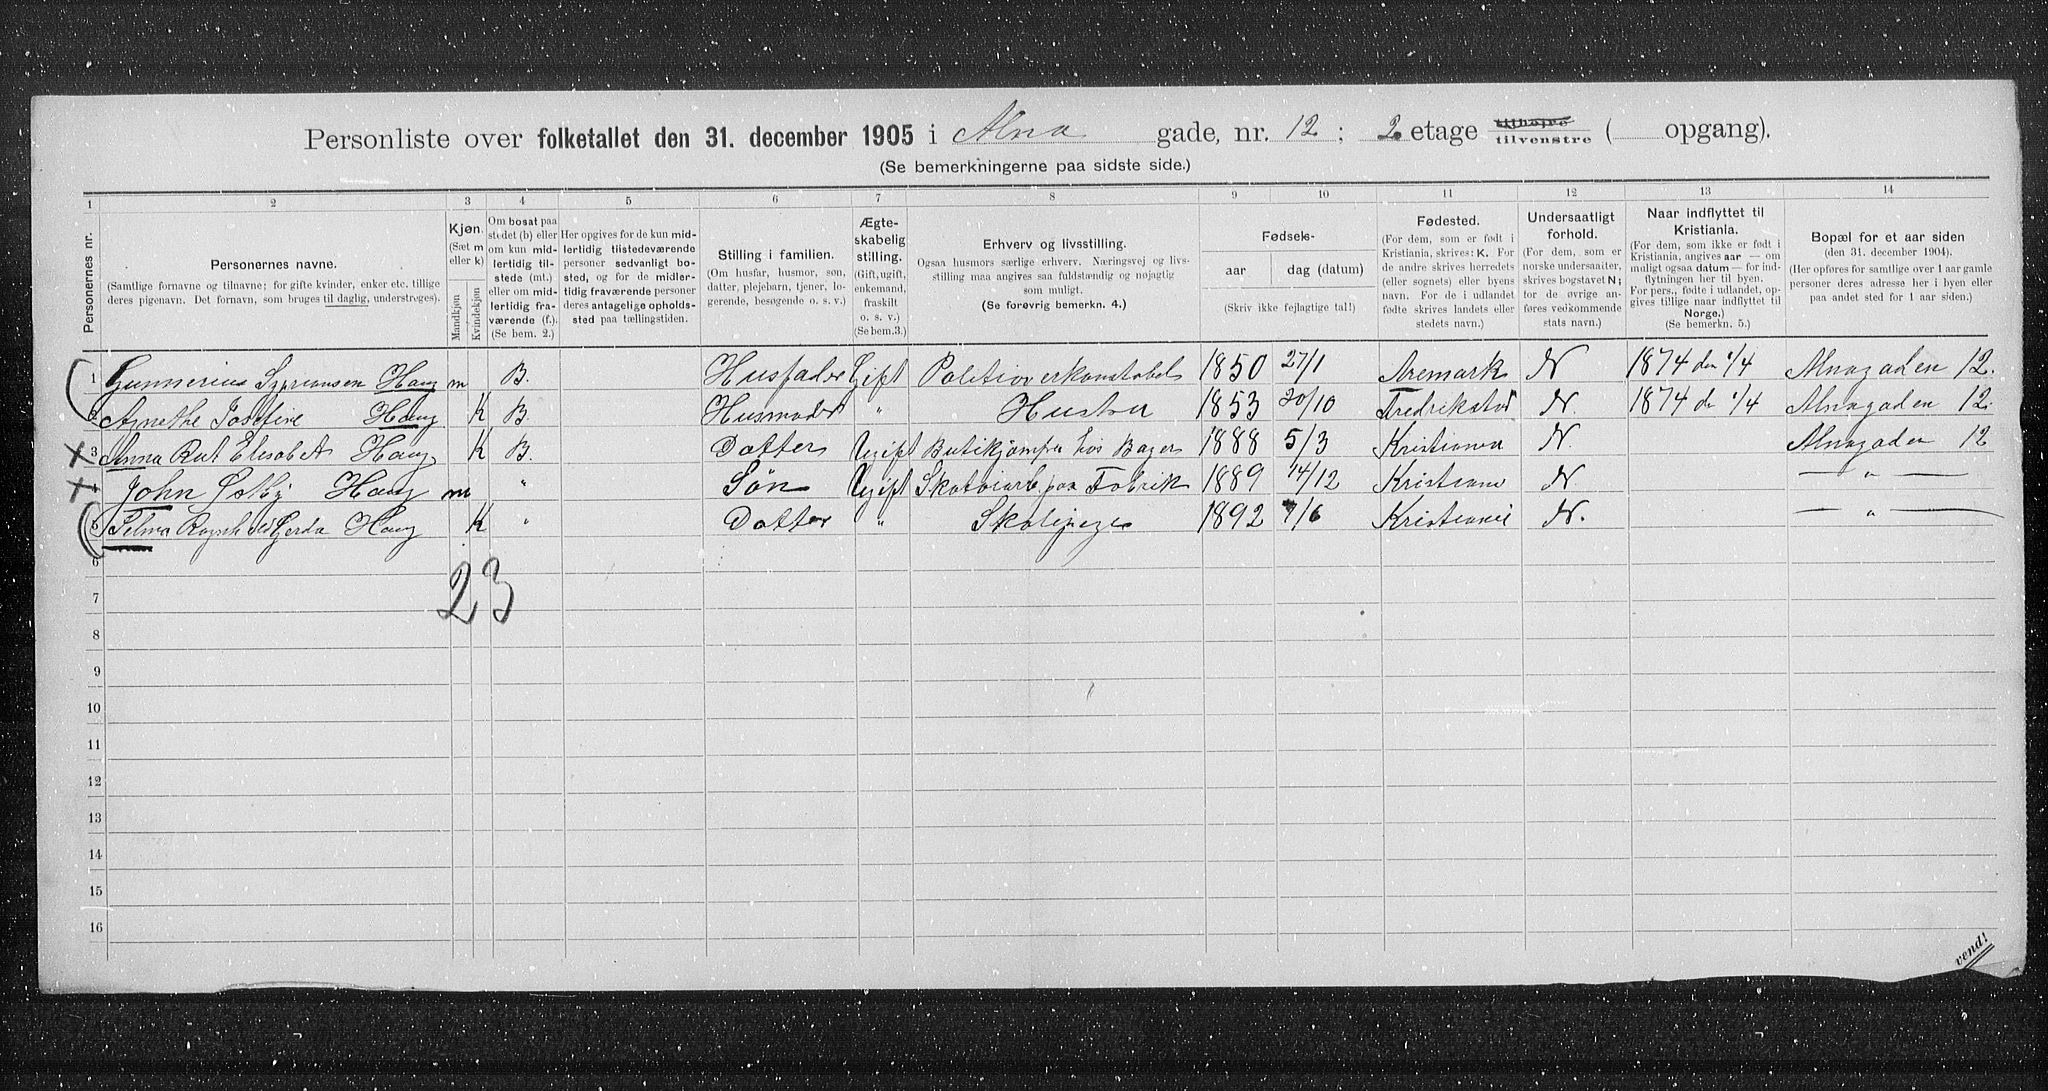 Personliste over folketallet den 31. december 1905 i Alna gade, nr. 12 ; 2. etage tilhøjre tilvenstre ( opgang).
(Se bemerkningerne paa sidste side.)
1 2 3 4 5 6 7 8 9 10 11 12 13 14
Personernes nr.
Personernes navne.
(Samtlige fornavne og tilnavne; for gifte kvinder, enker etc. tillige
deres pigenavn. Det fornavn, som bruges til daglig, understreges).
Kjøn.
(Sæt m
eller k)
Mandkjøn
Kvindekjøn
Om bosat paa
stedet (b) eller
om kun mid-
lertidig til-
stede (mt.)
eller om mid-
lertidig fra-
værende (f.).
(Se bem. 2.)
Her opgives for de kun mid-
lertidig tilstedeværende
personer sedvanligt bo-
sted, og for de midler-
tidig fraværende personer
deres antagelige opholds-
sted paa tællingstiden.
Stilling i familien.
(Om husfar, husmor, søn,
datter, plejebarn, tjener, lo-
gerende, besøgende o. s. v.)
Ægte-
skabelig
stilling.
(Gift, ugift,
enkemand,
fraskilt
o. s. v.)
(Se bem. 3.)
Erhverv og livsstilling.
Ogsaa husmors særlige erhverv. Næringsvej og livs-
stilling maa angives saa fuldstændig og nøjagtig
som muligt.
(Se forøvrig bemerkn. 4.)
Fødsels-
aar dag (datum)
(Skriv ikke fejlagtige tal!)
Fødested.
(For dem, som er født i
Kristiania, skrives: K. For
de andre skrives herredets
(eller sognets) eller byens
navn. For de i udlandet
fødte skrives landets eller
stedets navn.)
Undersaatligt
forhold.
(For dem, som er
norske undersaatter,
skrives bogstavet N;
for de øvrige an-
føres vedkommende
stats navn.)
Naar indflyttet til
Kristiania.
(For dem, som ikke er født i
Kristiania, angives aar — om
muligt ogsaa datum — for ind-
flytningen her til byen.
For pers., fødte i udlandet, op-
gives tillige naar indflyttet til
Norge.)
(Se bemerkn. 5.)
Bopæl for et aar siden
(den 31. december 1904).
(Her opføres for samtlige over 1 aar gamle
personer deres adresse her i byen eller
paa andet sted for 1 aar siden.)
1 Gunnerius Syvriansen Haug m B. Husfader Gift Politioverkonstabel 1850 27/1 Aremark N 1874 den 1/4 Alnagaden 12.
2 Agnethe Josefine Haug K B. Husmoder " Hustru 1853 20/10 Fredrikstad N. 1874 den 1/4 Alnagaden 12.
3 Anna Rut Elisabet Haug K B Datter Ugift Butikjomfru hos Bager 1888 5/3 Kristiania N. Alnagaden 12
4 John Østby Haug m " Søn Ugift Skotøiarb. paa Fabrik 1889 14/12 Kristiania N — " —
5 Selma Ragnhild Gjerda Haug K " Datter " Skolepige 1892 7/6 Kristiania N. — " —
6
23
7
8
9
10
11
12
13
14
15
16
vend!